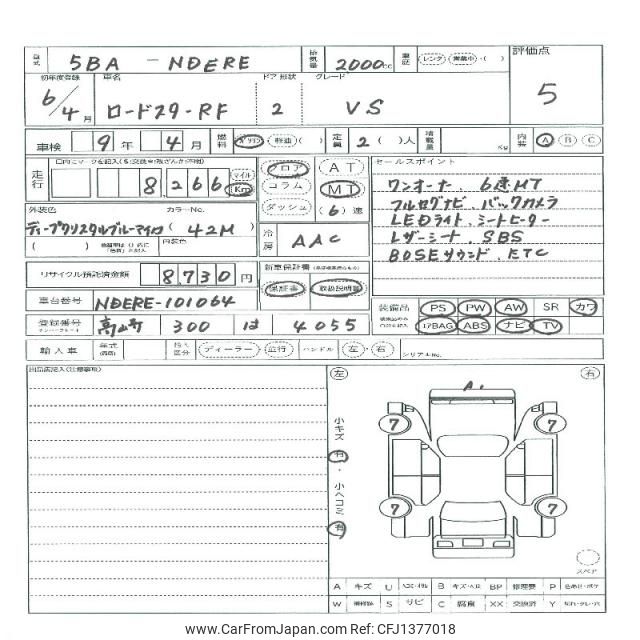 型式 5BA - NDERE 排気量 2000cc 車歴 レンタ・営業中・( ) 評価点 5
初年度登録 6/4月 車名 ロードスターRF ドア 形状 2 グレード VS
車検 9年 4月 燃料 ガソリン・軽油( ) 定員 2( )人 積載量 Kg 内装 A B C
走行 8,266 マイル Km フロア AT セールスポイント
コラム MT
ダッシュ (6)速
ワンオーナー、6速MT
フルセグナビ、バックカメラ
LEDライト、シートヒーター
レザーシート、SBS
BOSEサウンド、ETC
外装色 カラーNo.
ディープクリスタルブルーマイカ (42M)
内装色
冷房 AAC
リサイクル預託済金額 8,730円 新車保証書
保証書 取扱説明書
車台番号 NDERE-101064
装備品 PS PW AW SR カワ
登録番号 300 は 4055 エアBAG ABS ナビ TV
輸入車 年式 ディーラー・並行 ハンドル 左・右 シリアルNo.
出品店記入(注意事項)
左 右
A1
小キズ 有・小ヘコミ 有
7 7
7 7
スペア
A キズ U ヘコミ B キズ・ヘコミ BP 修理要 P 色あせ・ボケ
W 補修跡 S サビ C 腐食 XX 交換済 Y 切れ・ワレ・穴
www.CarFromJapan.com - CFJ1377018